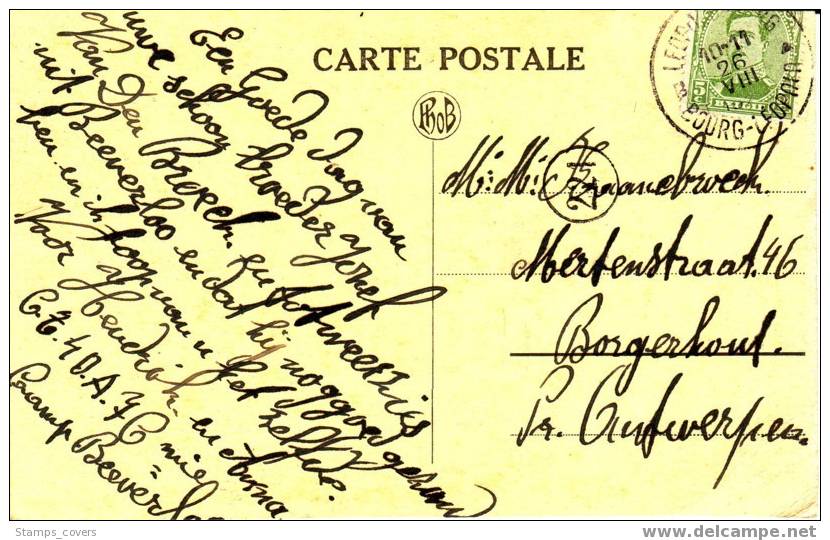 CARTE POSTALE
PhoB
LEOPOLDSBURG
10-11
26
VIII
BOURG-LÉOPOLD
5
BELGIË
Een Goede Dag van
uwe schoon broeder Josef
Van Den Broeck. en
uit Beverloo en dat hij nog goed gezond
ben en ik hoop van u het zelfde.
Voor Hendrik en
C.T. 4 D.A. 7 C
Camp Beverloo
Mr. Mr.
Mertenstraat. 46
Borgerhout.
Pr. Antwerpen.
Stamps_covers
www.delcampe.net